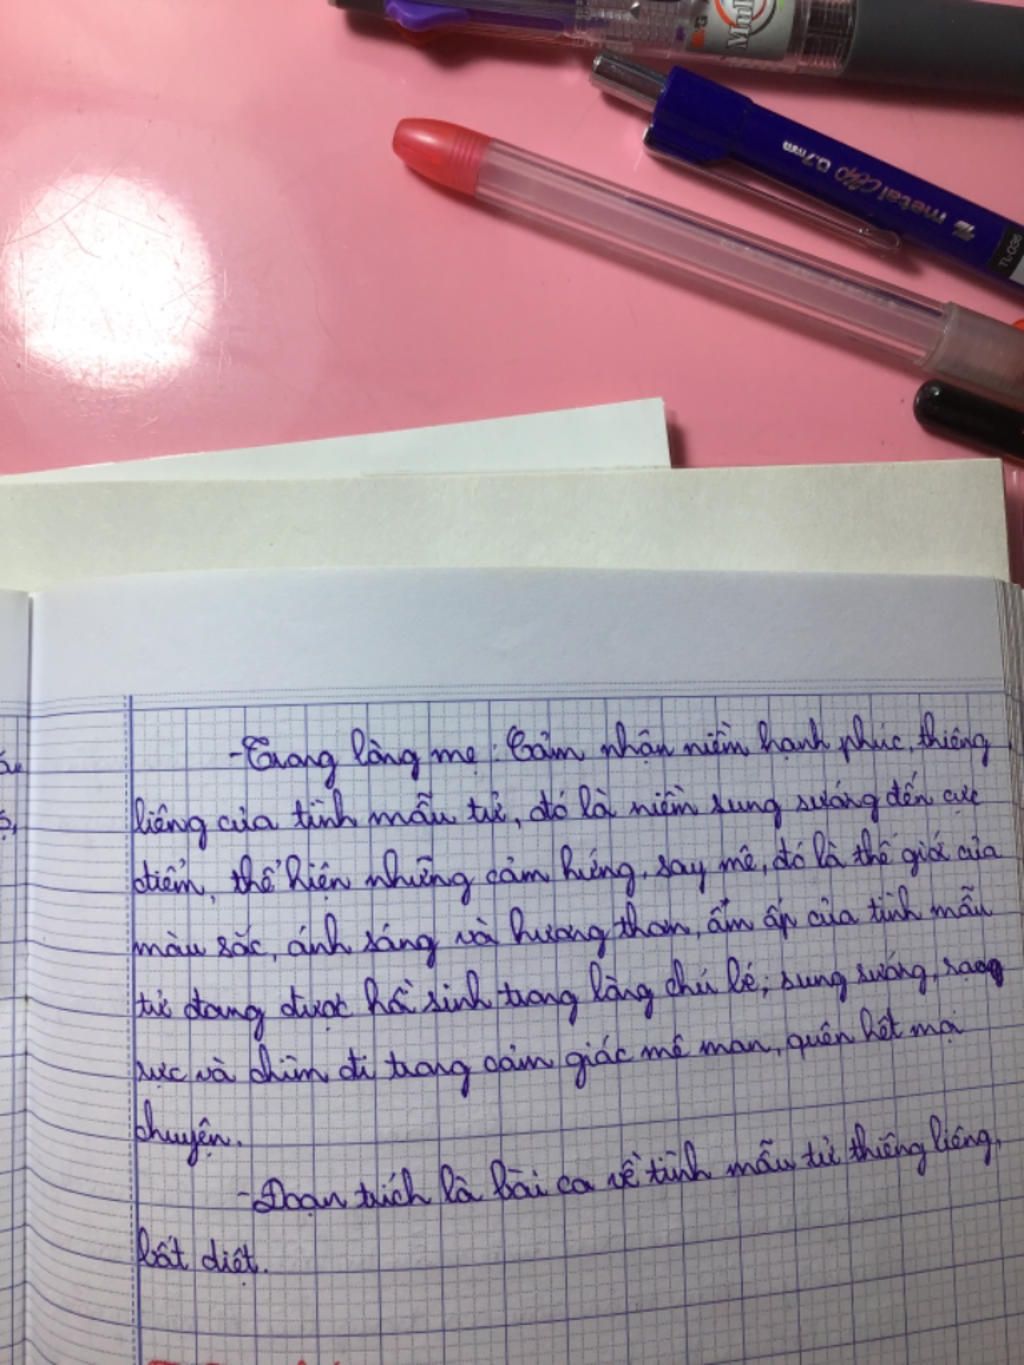 Mul
metal clip 0.7mm
TL-036
-Trong lòng mẹ: Cảm nhận niềm hạnh phúc, thiêng
liêng của tình mẫu tử, đó là niềm sung sướng đến cực
điểm, thể hiện những cảm hứng, say mê, đó là thế giới của
màu sắc, ánh sáng và hương thơm, ấm áp của tình mẫu
tử đang được hồi sinh trong lòng chú bé; sung sướng, rạo
rực và chìm đi trong cảm giác mê man, quên hết mọi
chuyện.
-Đoạn trích là bài ca về tình mẫu tử thiêng liêng,
bất diệt.